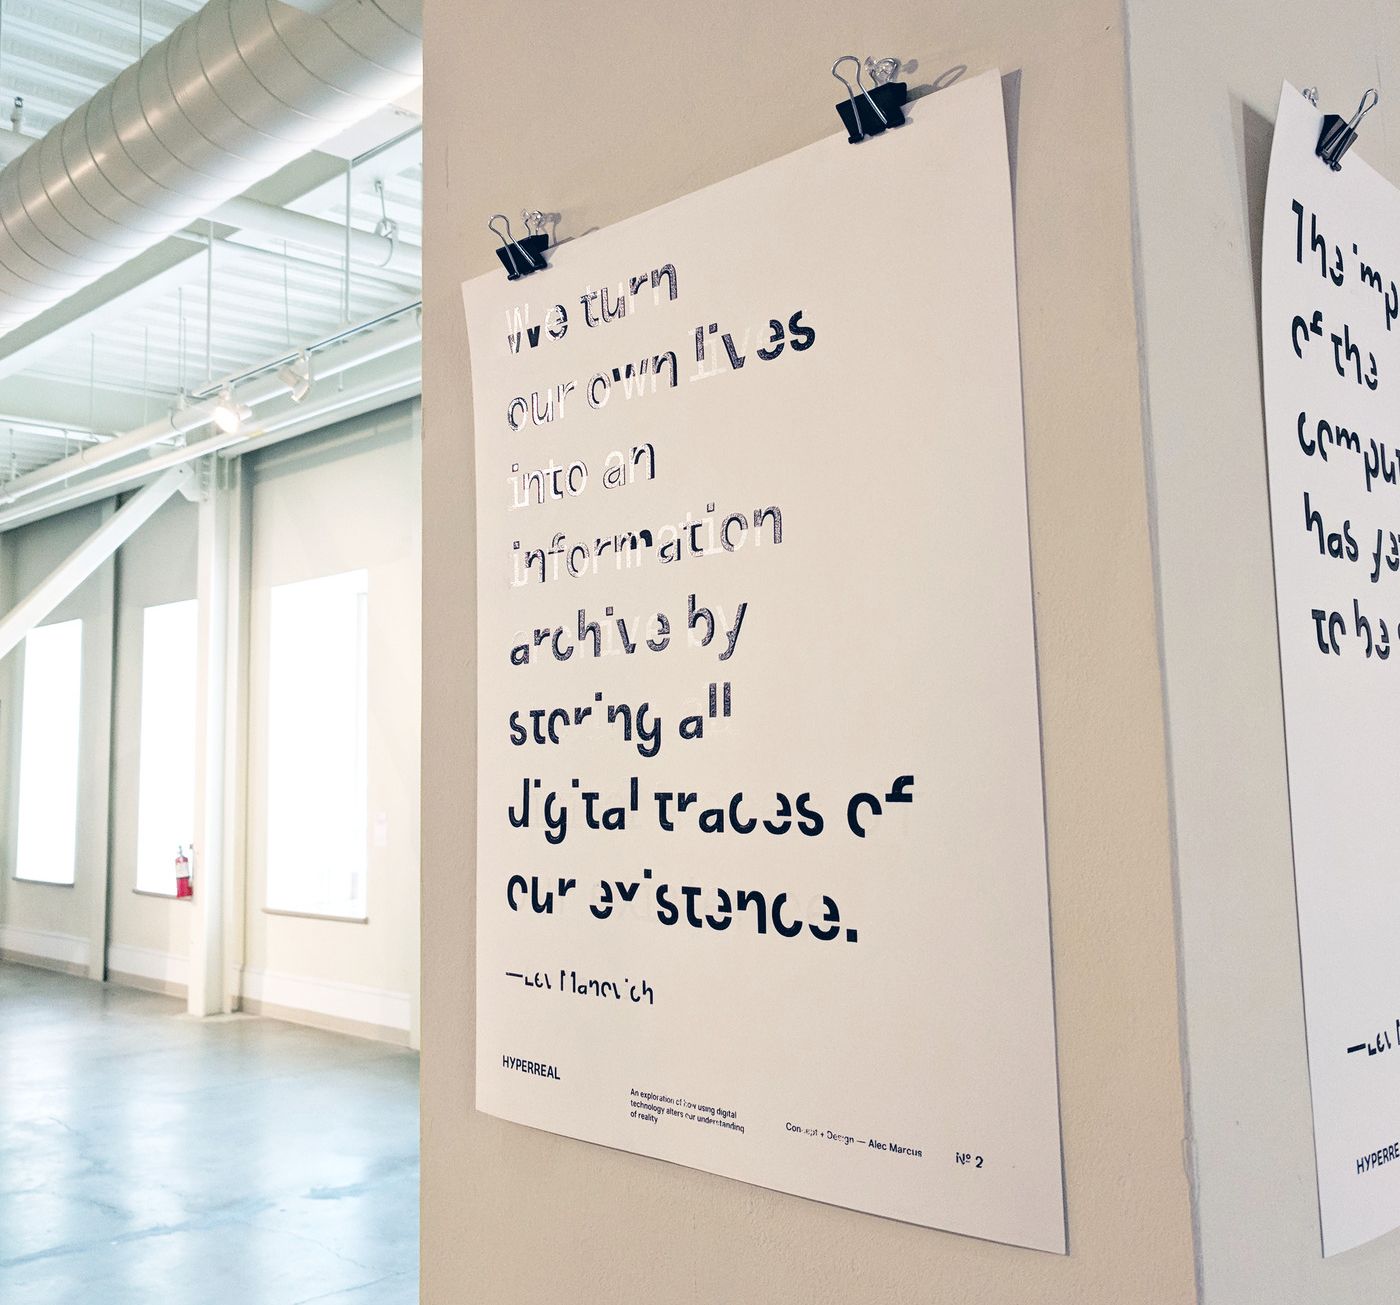 We turn
our own lives
into an
information
archive by
storing all
digital traces of
our existence.
—Lev Manovich
HYPERREAL
An exploration of how using digital
technology alters our understanding
of reality
Concept + Design — Alec Marcus
Nº 2
The imp
of the
comput
has ye
to be
—Lev M
HYPERRE